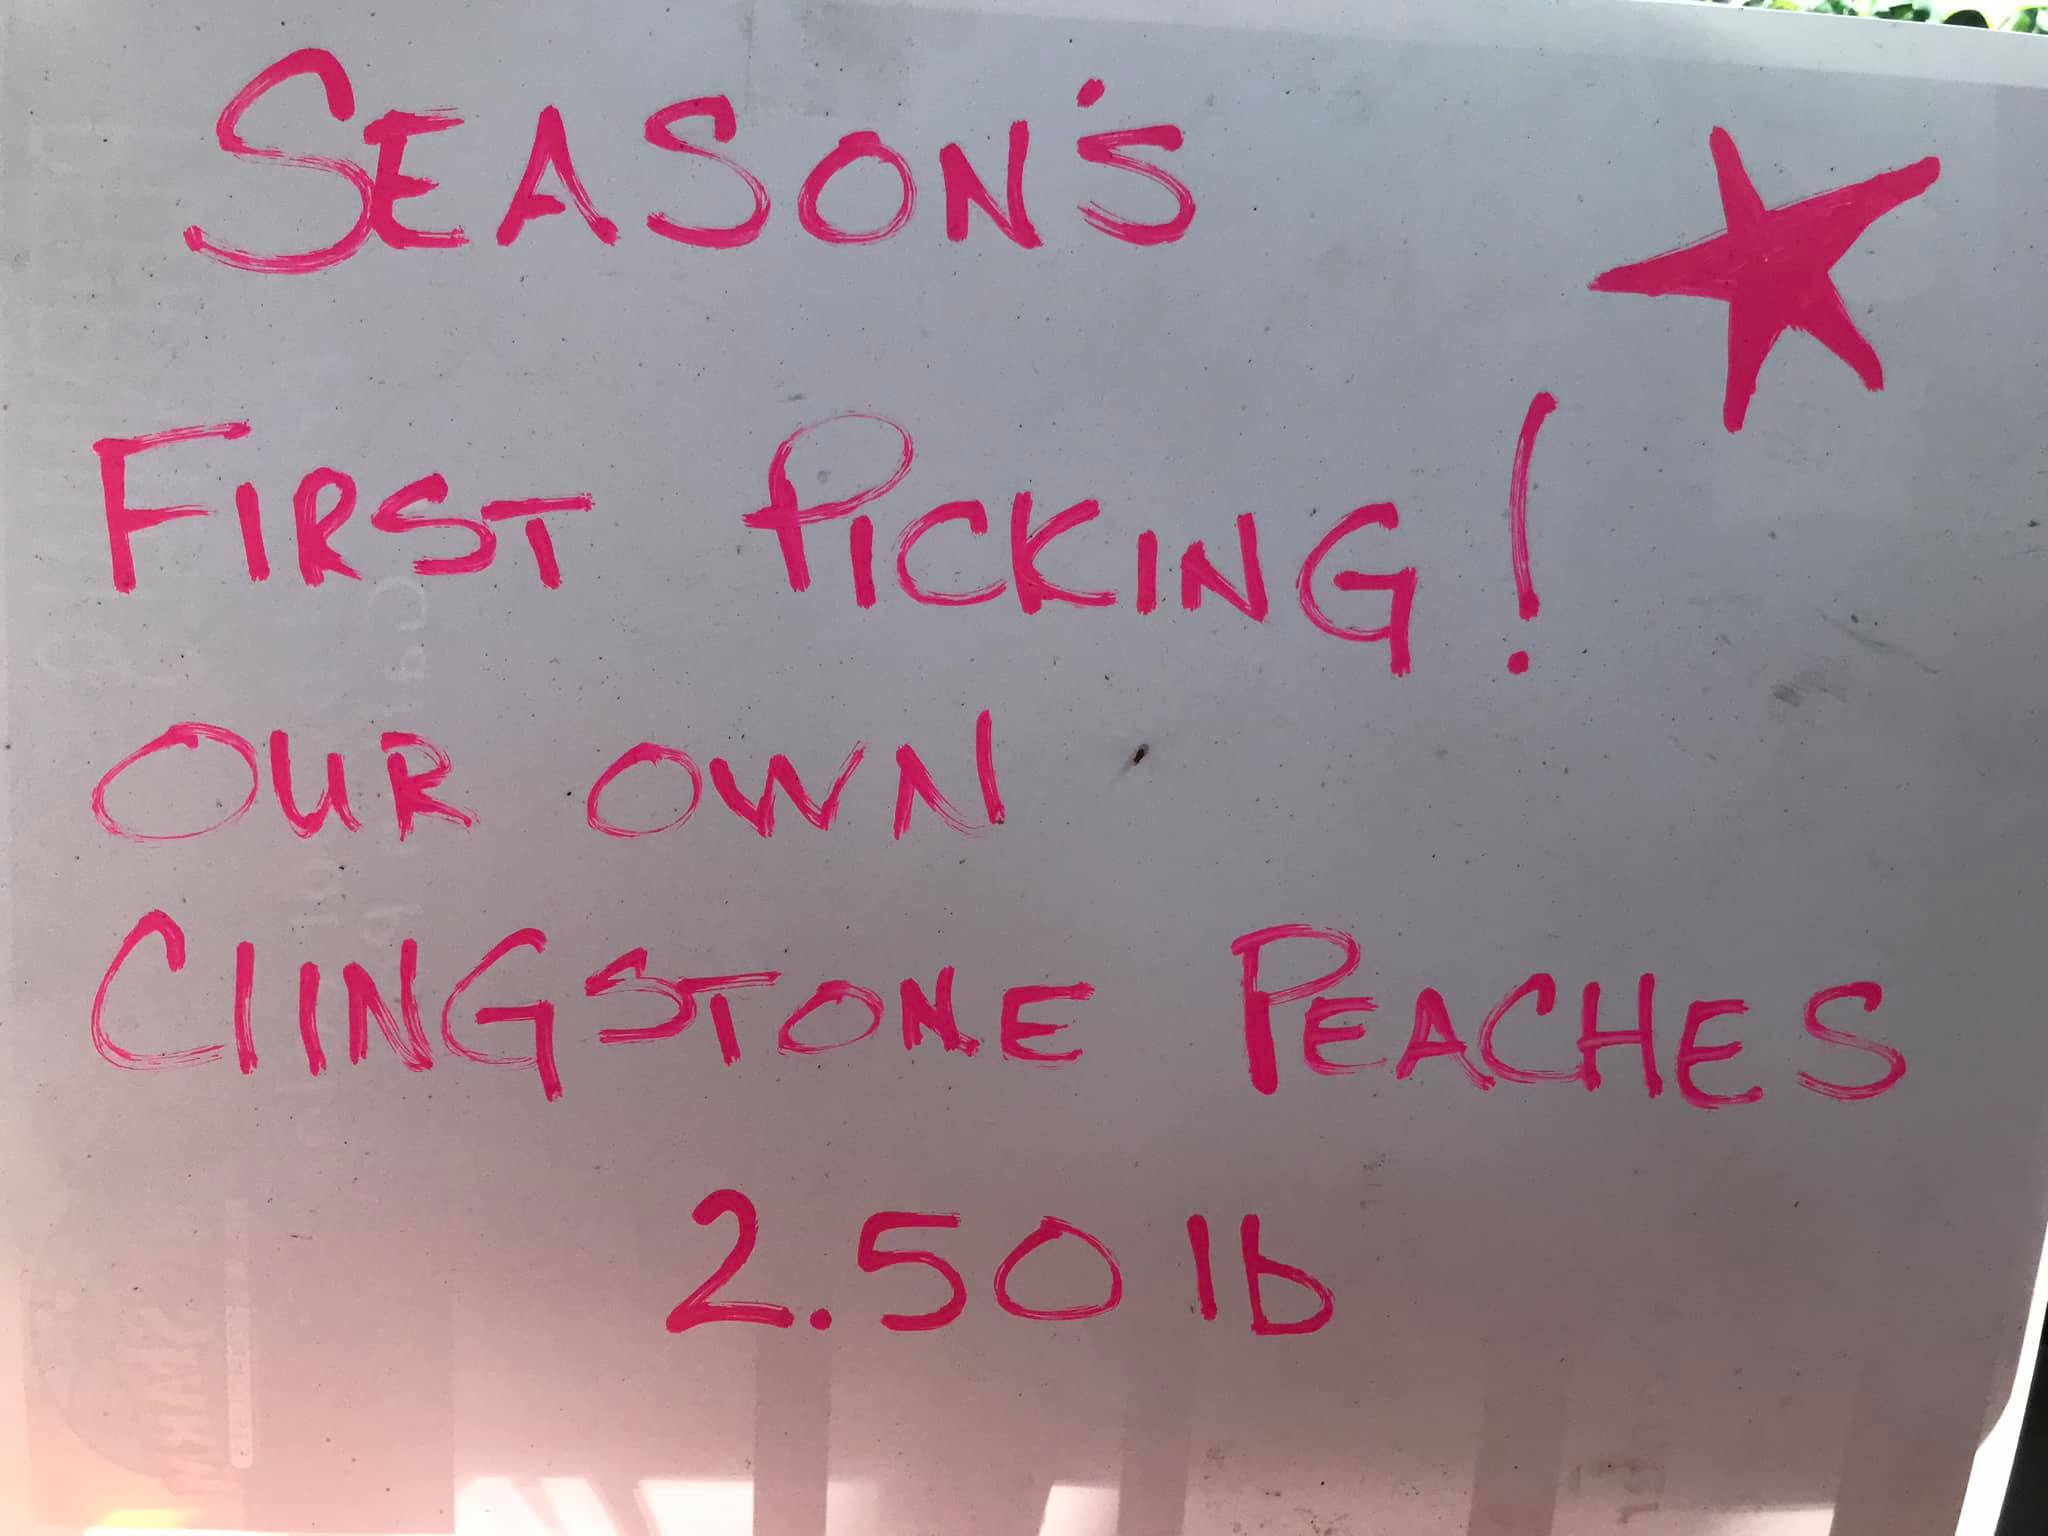 SEASON'S
FIRST PICKING!
OUR OWN
ClINGSTONE PEACHES
2.50 lb